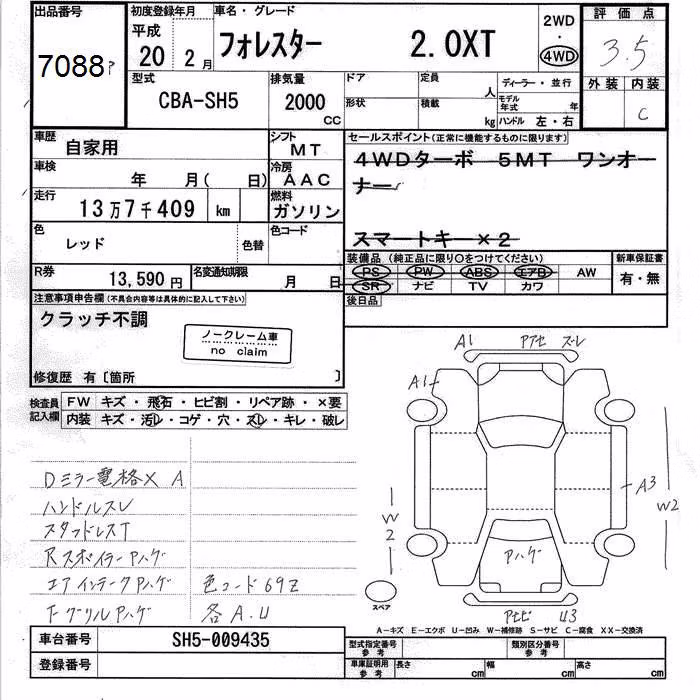 出品番号
7088
初度登録年月
平成
20年 2月
車名・グレード
フォレスター 2.0XT
2WD
・
4WD
評価点
3.5
外装 内装
C
型式
CBA-SH5
排気量
2000
CC
ドア
定員
人
形状
積載
kg
ディーラー・並行
モデル年式 年
ハンドル 左・右
車歴
自家用
シフト
MT
車検
年 月( 日)
冷房
AAC
走行
13万7千409 km
燃料
ガソリン
色
レッド
色替
色コード
R券
13,590円
名変通知期限
月 日
セールスポイント(正常に機能するものに限ります)
4WDターボ 5MT ワンオー
ナー
スマートキー×2
装備品(純正品に限り○をつけてください)
PS PW ABS エアB AW
SR ナビ TV カワ
新車保証書
有・無
後日品
注意事項申告欄(不具合内容等は具体的に記入して下さい)
クラッチ不調
ノークレーム車
no claim
修復歴 有〔箇所 〕
検査員
記入欄
FW キズ・飛石・ヒビ割・リペア跡・×要
内装 キズ・汚レ・コゲ・穴・スレ・キレ・破レ
Dミラー電格× A
ハンドルスレ
スタッドレスT
RスポイラーPハゲ
エアインテークPハゲ
色コード69Z
FグリルPハゲ
各A.U
A1
Pアセ ズレ
A1
A3
W2
W2
Pハゲ
スペア
PサビU3
A-キズ E-エクボ U-凹み W-補修跡 S-サビ C-腐食 XX-交換済
車台番号
SH5-009435
登録番号
型式指定番号
参考
類別区分番号
参考
車庫証明用
参考
長さ cm
幅 cm
高さ cm